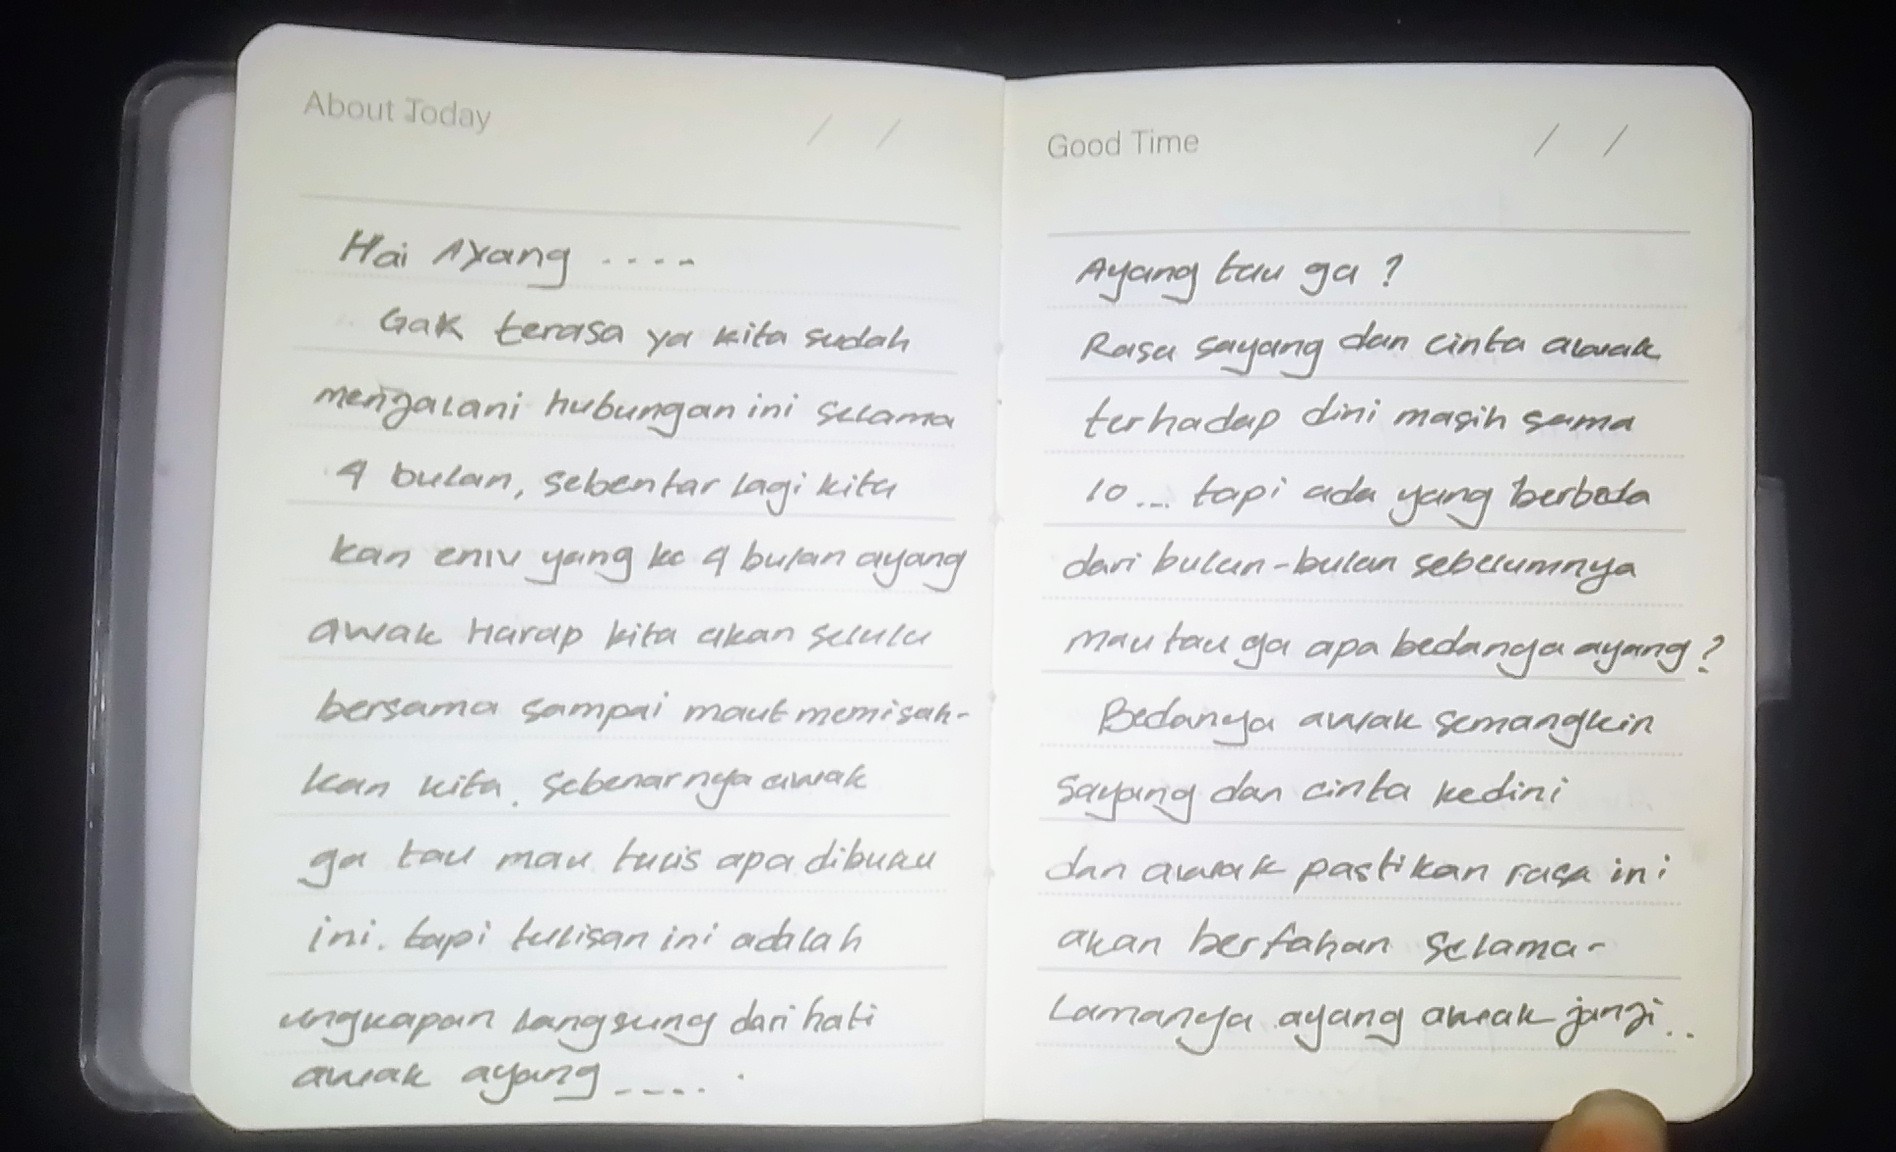 About Today / /
Hai Ayang ....
Gak terasa ya kita sudah
menjalani hubungan ini selama
4 bulan, sebentar lagi kita
kan eniv yang ke 4 bulan ayang
awak harap kita akan selulu
bersama sampai maut memisah-
kan kita. sebenarnya awak
ga tau mau tulis apa dibuku
ini. tapi tulisan ini adalah
ungkapan langsung dari hati
awak ayang ____..
Good Time / /
Ayang tau ga ?
Rasa sayang dan cinta awak
terhadap dini masih sama
10... tapi ada yang berbeda
dari bulan-bulan sebelumnya
mau tau ga apa bedanya ayang ?
Bedanya awak semangkin
sayang dan cinta kedini
dan awak pastikan rasa ini
akan bertahan selama-
lamanya ayang awak janji..